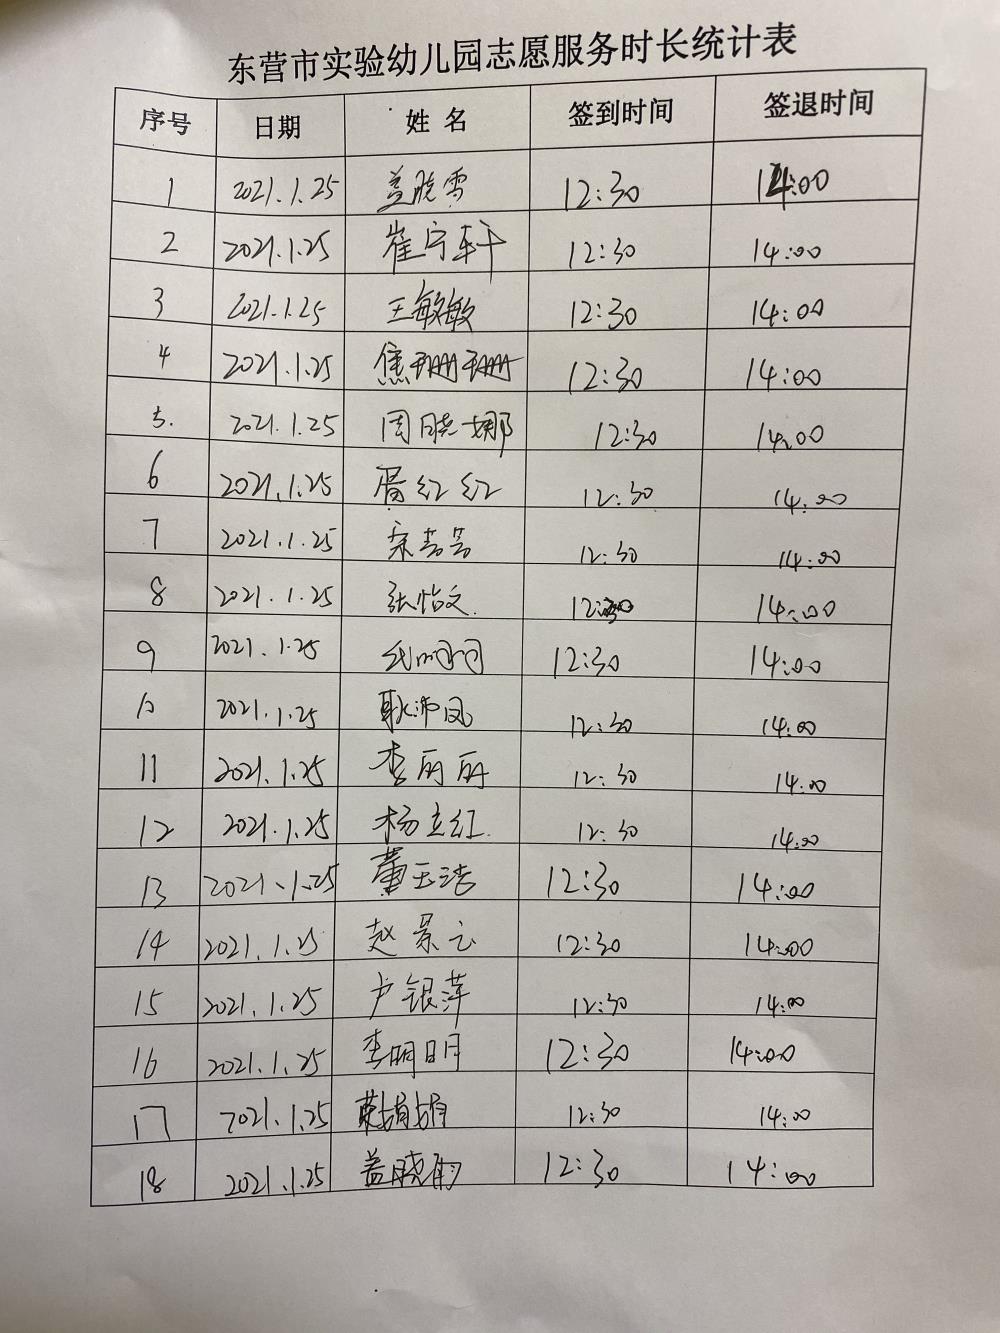 东营市实验幼儿园志愿服务时长统计表
序号 日期 姓 名 签到时间 签退时间
1 2021.1.25 盖晓雪 12:30 14:00
2 2021.1.25 崔宁轩 12:30 14:00
3 2021.1.25 王敏敏 12:30 14:00
4 2021.1.25 焦珊珊 12:30 14:00
5. 2021.1.25 周晓娜 12:30 14:00
6 2021.1.25 红红 12:30 14:00
7 2021.1.25 12:30 14:00
8 2021.1.25 张怡文. 12:30 14:00
9 2021.1.25 12:30 14:00
10 2021.1.25 耿沛凤 12:30 14:00
11 2021.1.25 李丽丽 12:30 14:00
12 2021.1.25 杨立红. 12:30 14:00
13 2021.1.25 董玉洁 12:30 14:00
14 2021.1.25 赵景云 12:30 14:00
15 2021.1.25 卢银萍 12:30 14:00
16 2021.1.25 李明月 12:30 14:00
17 2021.1.25 娟娟 12:30 14:00
18 2021.1.25 盖晓雨 12:30 14:00